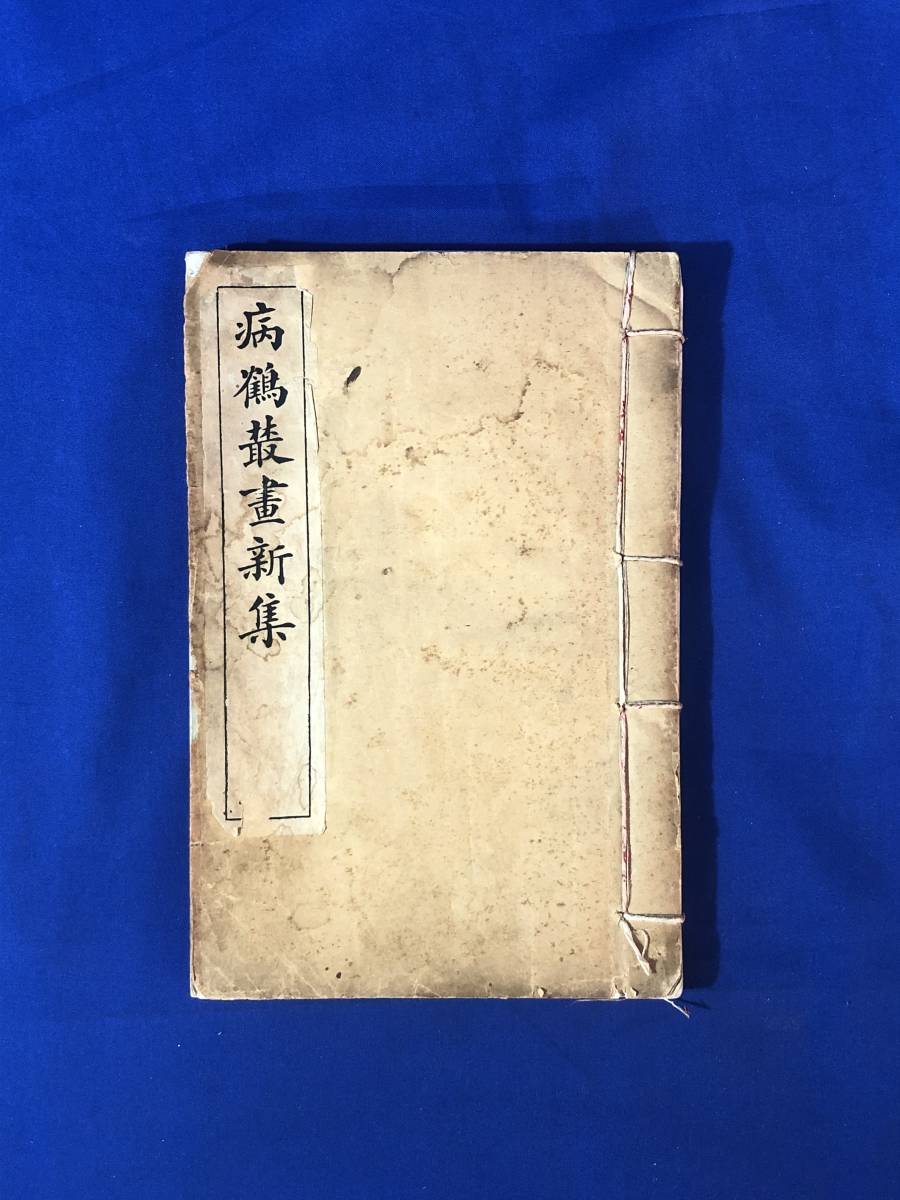 病鶴叢畫新集